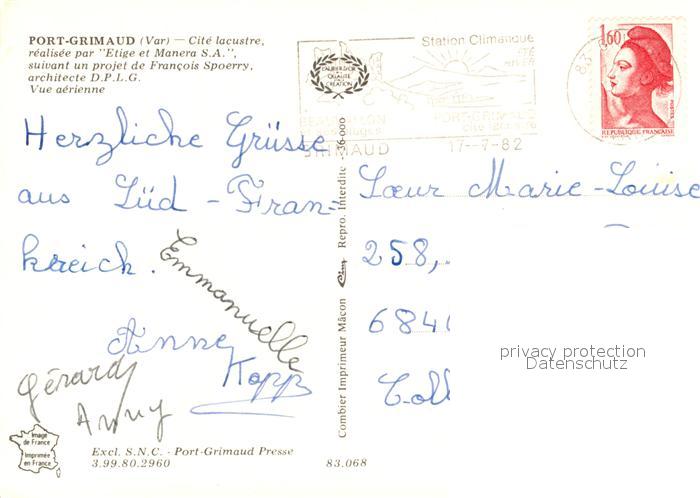 PORT-GRIMAUD (Var) — Cité lacustre,
réalisée par "Etige et Manera S.A.",
suivant un projet de François Spoerry,
architecte D.P.L.G.
Vue aérienne
Station Climatique
ÉTÉ
HIVER
PORT-GRIMAUD
cité lacustre
GRIMAUD
17--7-82
83
1,60
REPUBLIQUE FRANÇAISE
Herzliche Grüsse
aus Süd-Fran=
kreich.
Emmanuelle
Anne
Kopp
Gérard
Anny
Sœur Marie-Louise
258,
6841
Coll
privacy protection
Datenschutz
Combier Imprimeur Mâcon Cim Repro. Interdite 36-000
Image
de France
Imprimée
en France
Excl. S.N.C. - Port-Grimaud Presse
3.99.80.2960
83.068